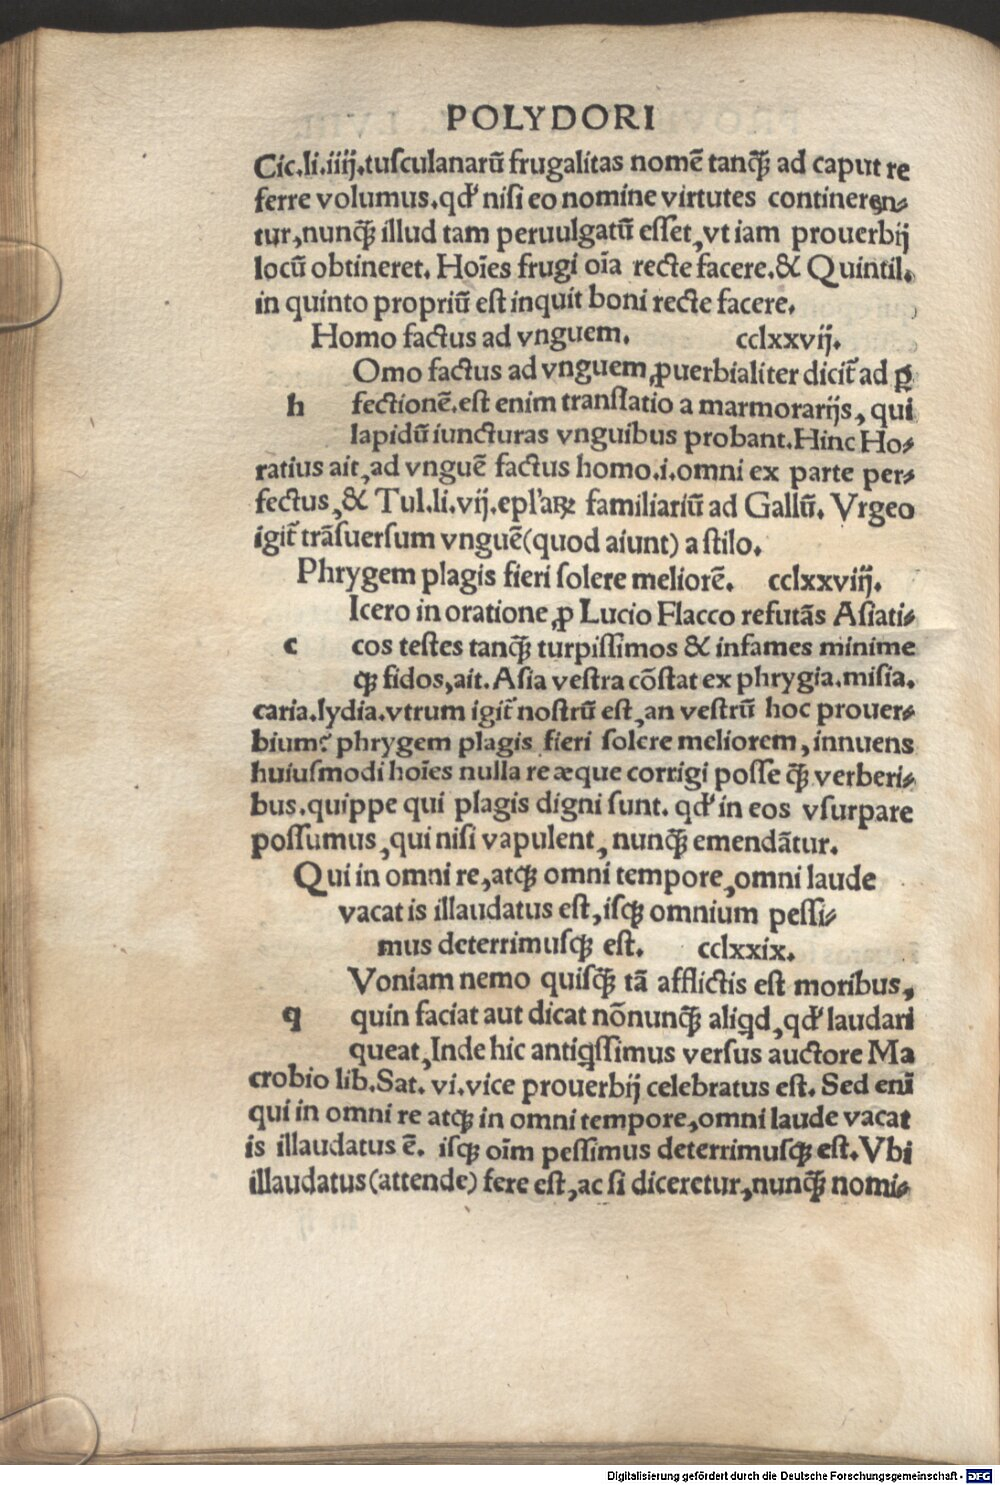 POLYDORI
Cic.li.iiij.tusculanarũ frugalitas nomẽ tanꝙ̃ ad caput re
ferre volumus.qđ nisi eo nomine virtutes contineren⸗
tur,nunꝙ̃ illud tam peruulgatũ esset,vt iam prouerbij
locũ obtineret. Hoĩes frugi oĩa recte facere.& Quintil.
in quinto propriũ est inquit boni recte facere.
Homo factus ad vnguem. cclxxvij.
Omo factus ad vnguem,ꝓuerbialiter dicit̃ ad ꝑ
h fectionẽ.est enim translatio a marmorarijs, qui
lapidũ iuncturas vnguibus probant.Hinc Ho⸗
ratius ait,ad vnguẽ factus homo.i.omni ex parte per⸗
fectus,& Tul.li.vij.epl'aꝝ familiariũ ad Gallũ. Vrgeo
igit̃ trãsuersum vnguẽ(quod aiunt) a stilo.
Phrygem plagis fieri solere meliorẽ. cclxxviij.
Icero in oratione ꝓ Lucio Flacco refutãs Asiati⸗
c cos testes tanꝙ̃ turpissimos & infames minime
ꝙ fidos,ait.Asia vestra cõstat ex phrygia.misia.
caria.lydia.vtrum igit̃ nostrũ est,an vestrũ hoc prouer⸗
bium? phrygem plagis fieri solere meliorem, innuens
huiusmodi hoĩes nulla re æque corrigi posse ꝙ̃ verberi⸗
bus.quippe qui plagis digni sunt. qđ in eos vsurpare
possumus,qui nisi vapulent, nunꝙ̃ emendãtur.
Qui in omni re,atꝙ omni tempore,omni laude
vacat is illaudatus est,isꝙ omnium pessi⸗
mus deterrimusꝙ est. cclxxix.
Voniam nemo quisꝙ̃ tã afflictis est moribus,
q quin faciat aut dicat nõnunꝙ̃ aliꝗd,qđ laudari
queat,Inde hic antiꝗssimus versus auctore Ma
crobio lib.Sat. vi.vice prouerbij celebratus est. Sed enĩ
qui in omni re atꝙ in omni tempore,omni laude vacat
is illaudatus ẽ. isꝙ oĩm pessimus deterrimusꝙ est.Vbi
illaudatus(attende) fere est,ac si diceretur,nunꝙ̃ nomi⸗
Digitalisierung gefördert durch die Deutsche Forschungsgemeinschaft - DFG